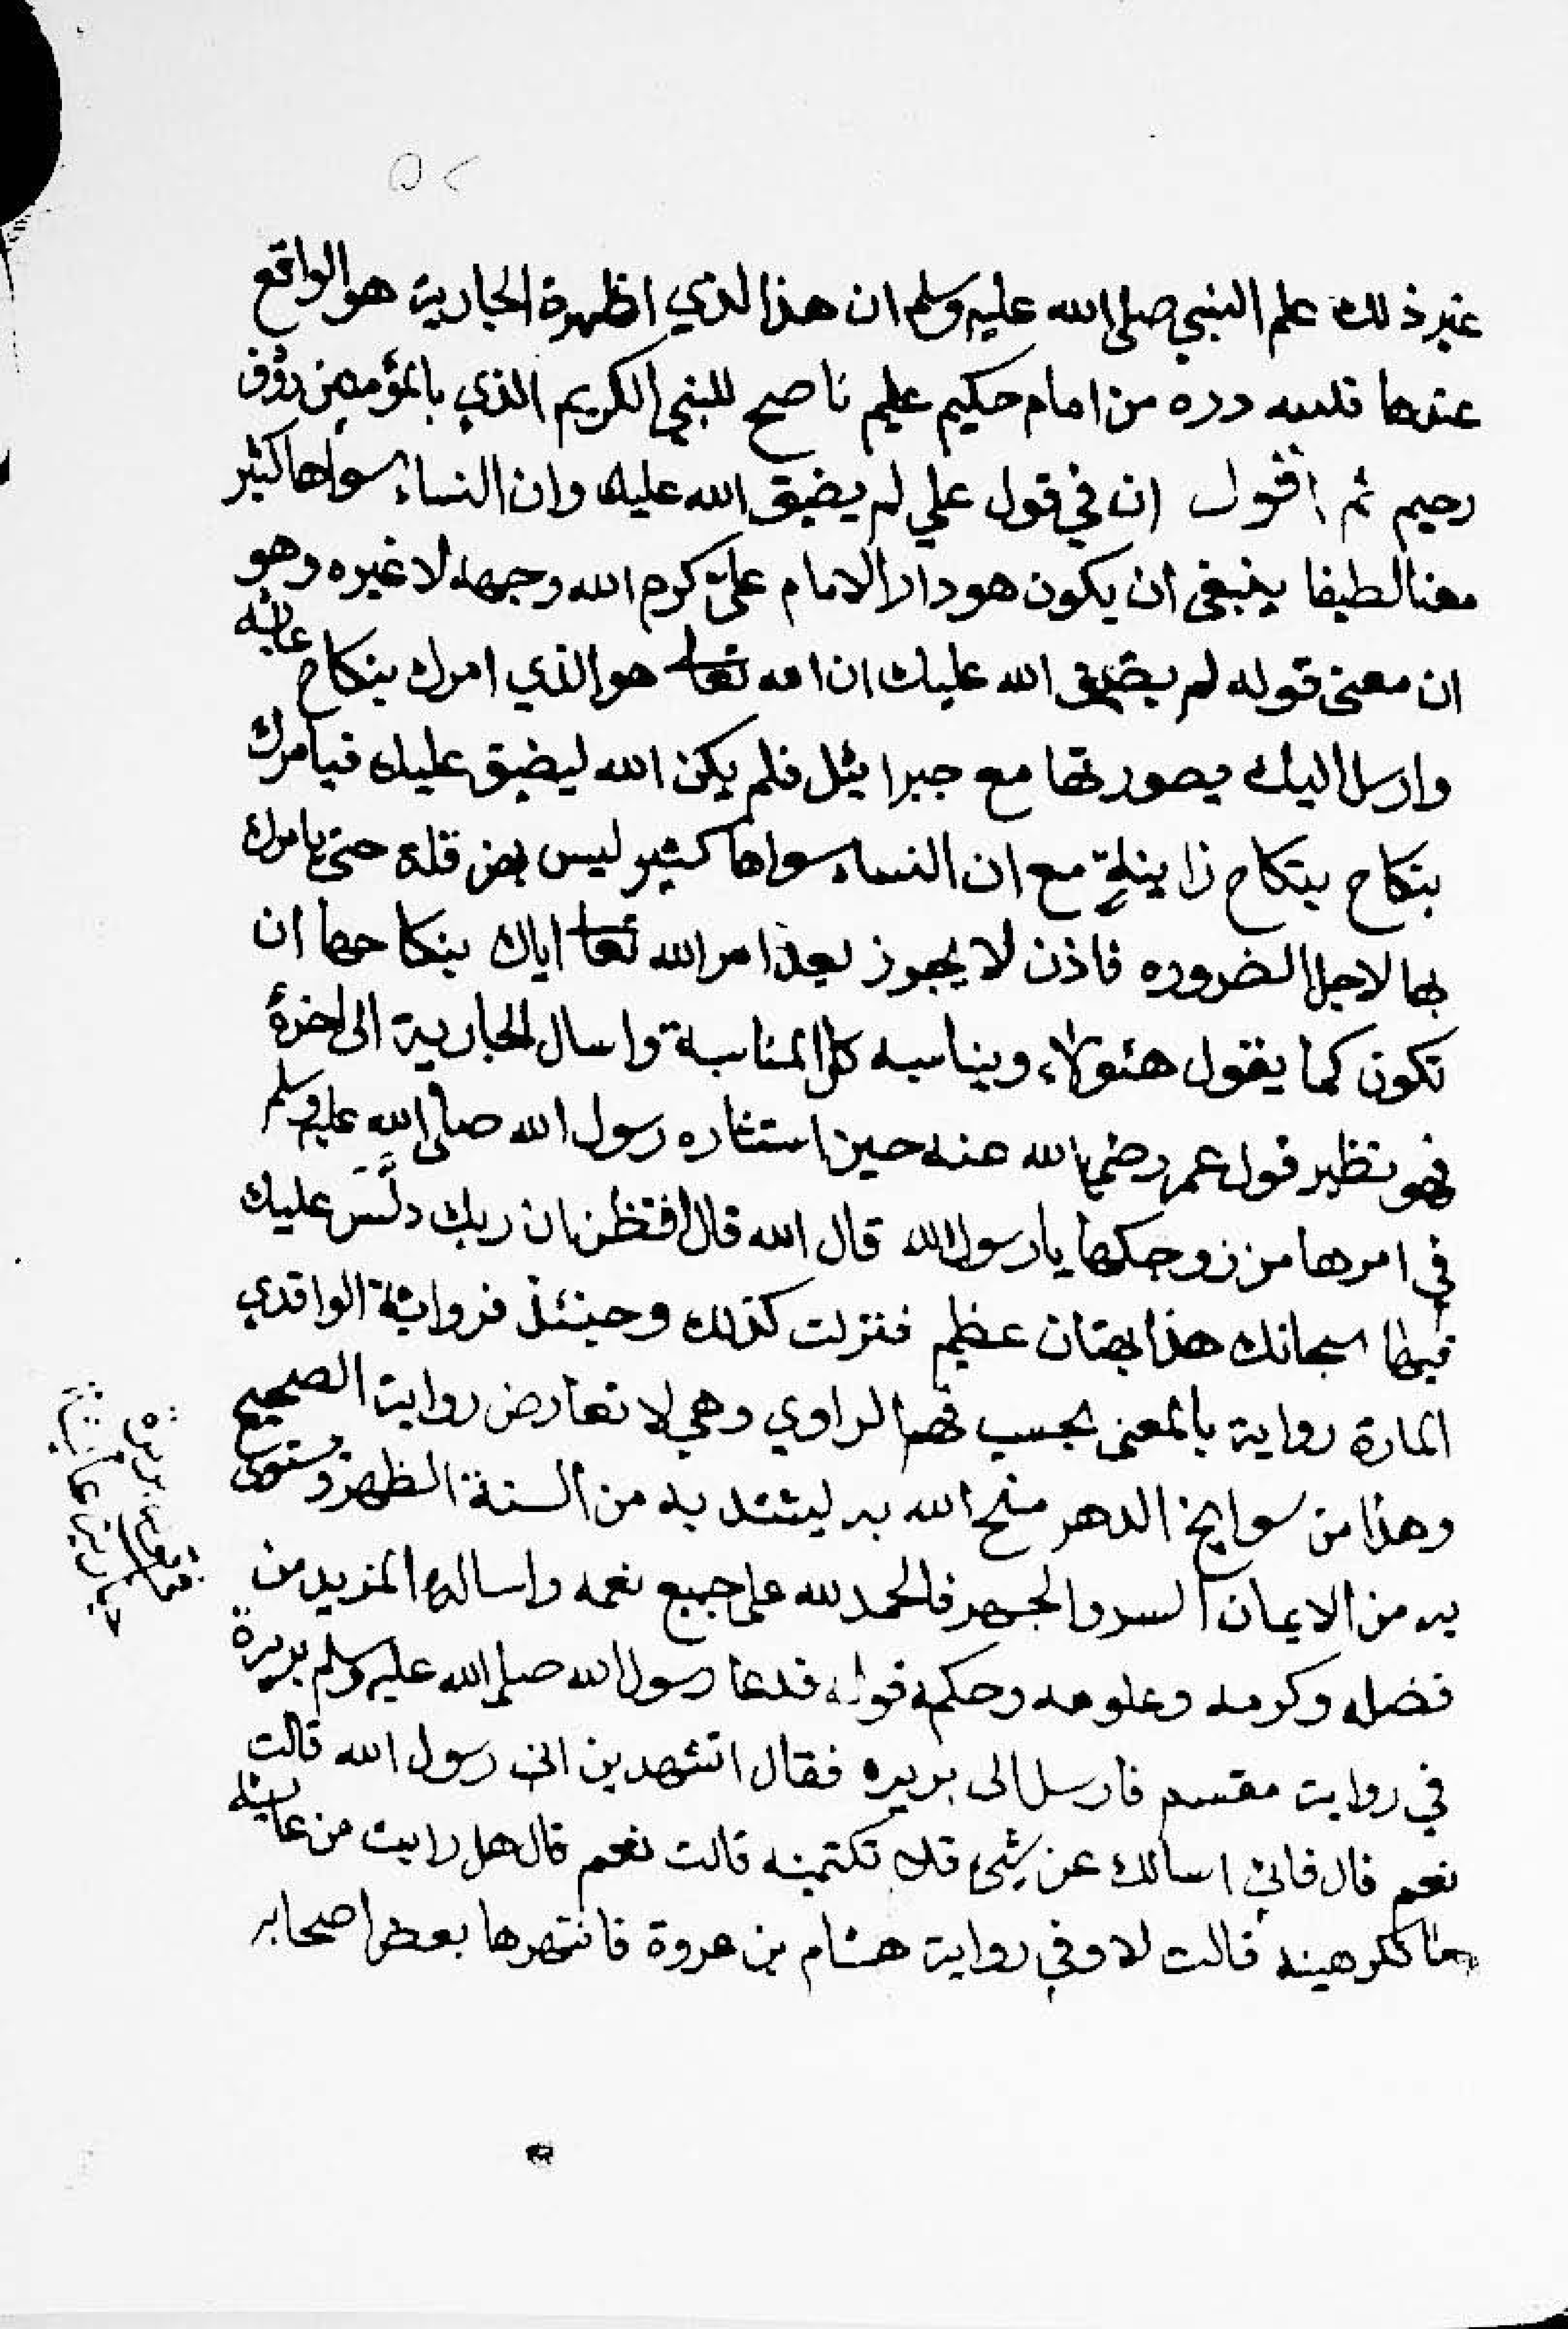 ٥٢
غير ذلك علم النبي صلى الله عليه وسلم ان هذا الذي اظهرة الجارية هو الواقع
عندها فلله دره من امام حكيم عليم ناصح للنبي الكريم الذي بالمؤمنين رؤف
رحيم ثم اقول ان في قول علي لم يضيق الله عليك وان النساء سواها كثير
معنا لطيفا ينبغي ان يكون هو دار الامام علي كرم الله وجهه لا غيره وهو
ان معنى قوله لم يضيق الله عليك ان الله تعالى هو الذي امرك بنكاح عائشه
وارسل اليك بصورتها مع جبرائيل فلم يكن الله ليضيق عليك فيامرك
بنكاح بنكاح زانية مع ان النساء سواها كثير ليس بهن قلة حتى يامرك
بها لاجل الضروره فاذن لا يجوز بعد امر الله تعالى اياك بنكاحها ان
تكون كما يقول هئولاء ويناسبه كل المناسبة واسال الجارية الى اخرة
فهو نظير قول عمر رضي الله عنه حين استشاره رسول الله صلى الله عليه وسلم
في امرها من زوجكها يا رسول الله قال الله قال افتظن ان ربك دلَّسَ عليك
فيها سبحانك هذا بهتان عظيم فنزلت كذلك وحينئذ فرواية الواقدي
المارة رواية بالمعنى بحسب فهم الراوي وهي لا تعارض رواية الصحيح
وهذا من سوانح الدهر منح الله به ليشتد به من السنة الظهر ويتقوى
به من الايمان السر والجهر فالحمد لله على جميع نعمه واساله المزيد من
فضله وكرمه وعلومه وحكمه قوله فدعا رسول الله صلى الله عليه وسلم بريرة
في رواية مقسم فارسل الى بريره فقال اتشهدين اني رسول الله قالت
نعم قال فاني اسالك عن شيئ فلا تكتمينه قالت نعم قال هل رايت من عايشه
ما تكرهينه قالت لا وفي رواية هشام بن عروة فانتهرها بعض اصحابه